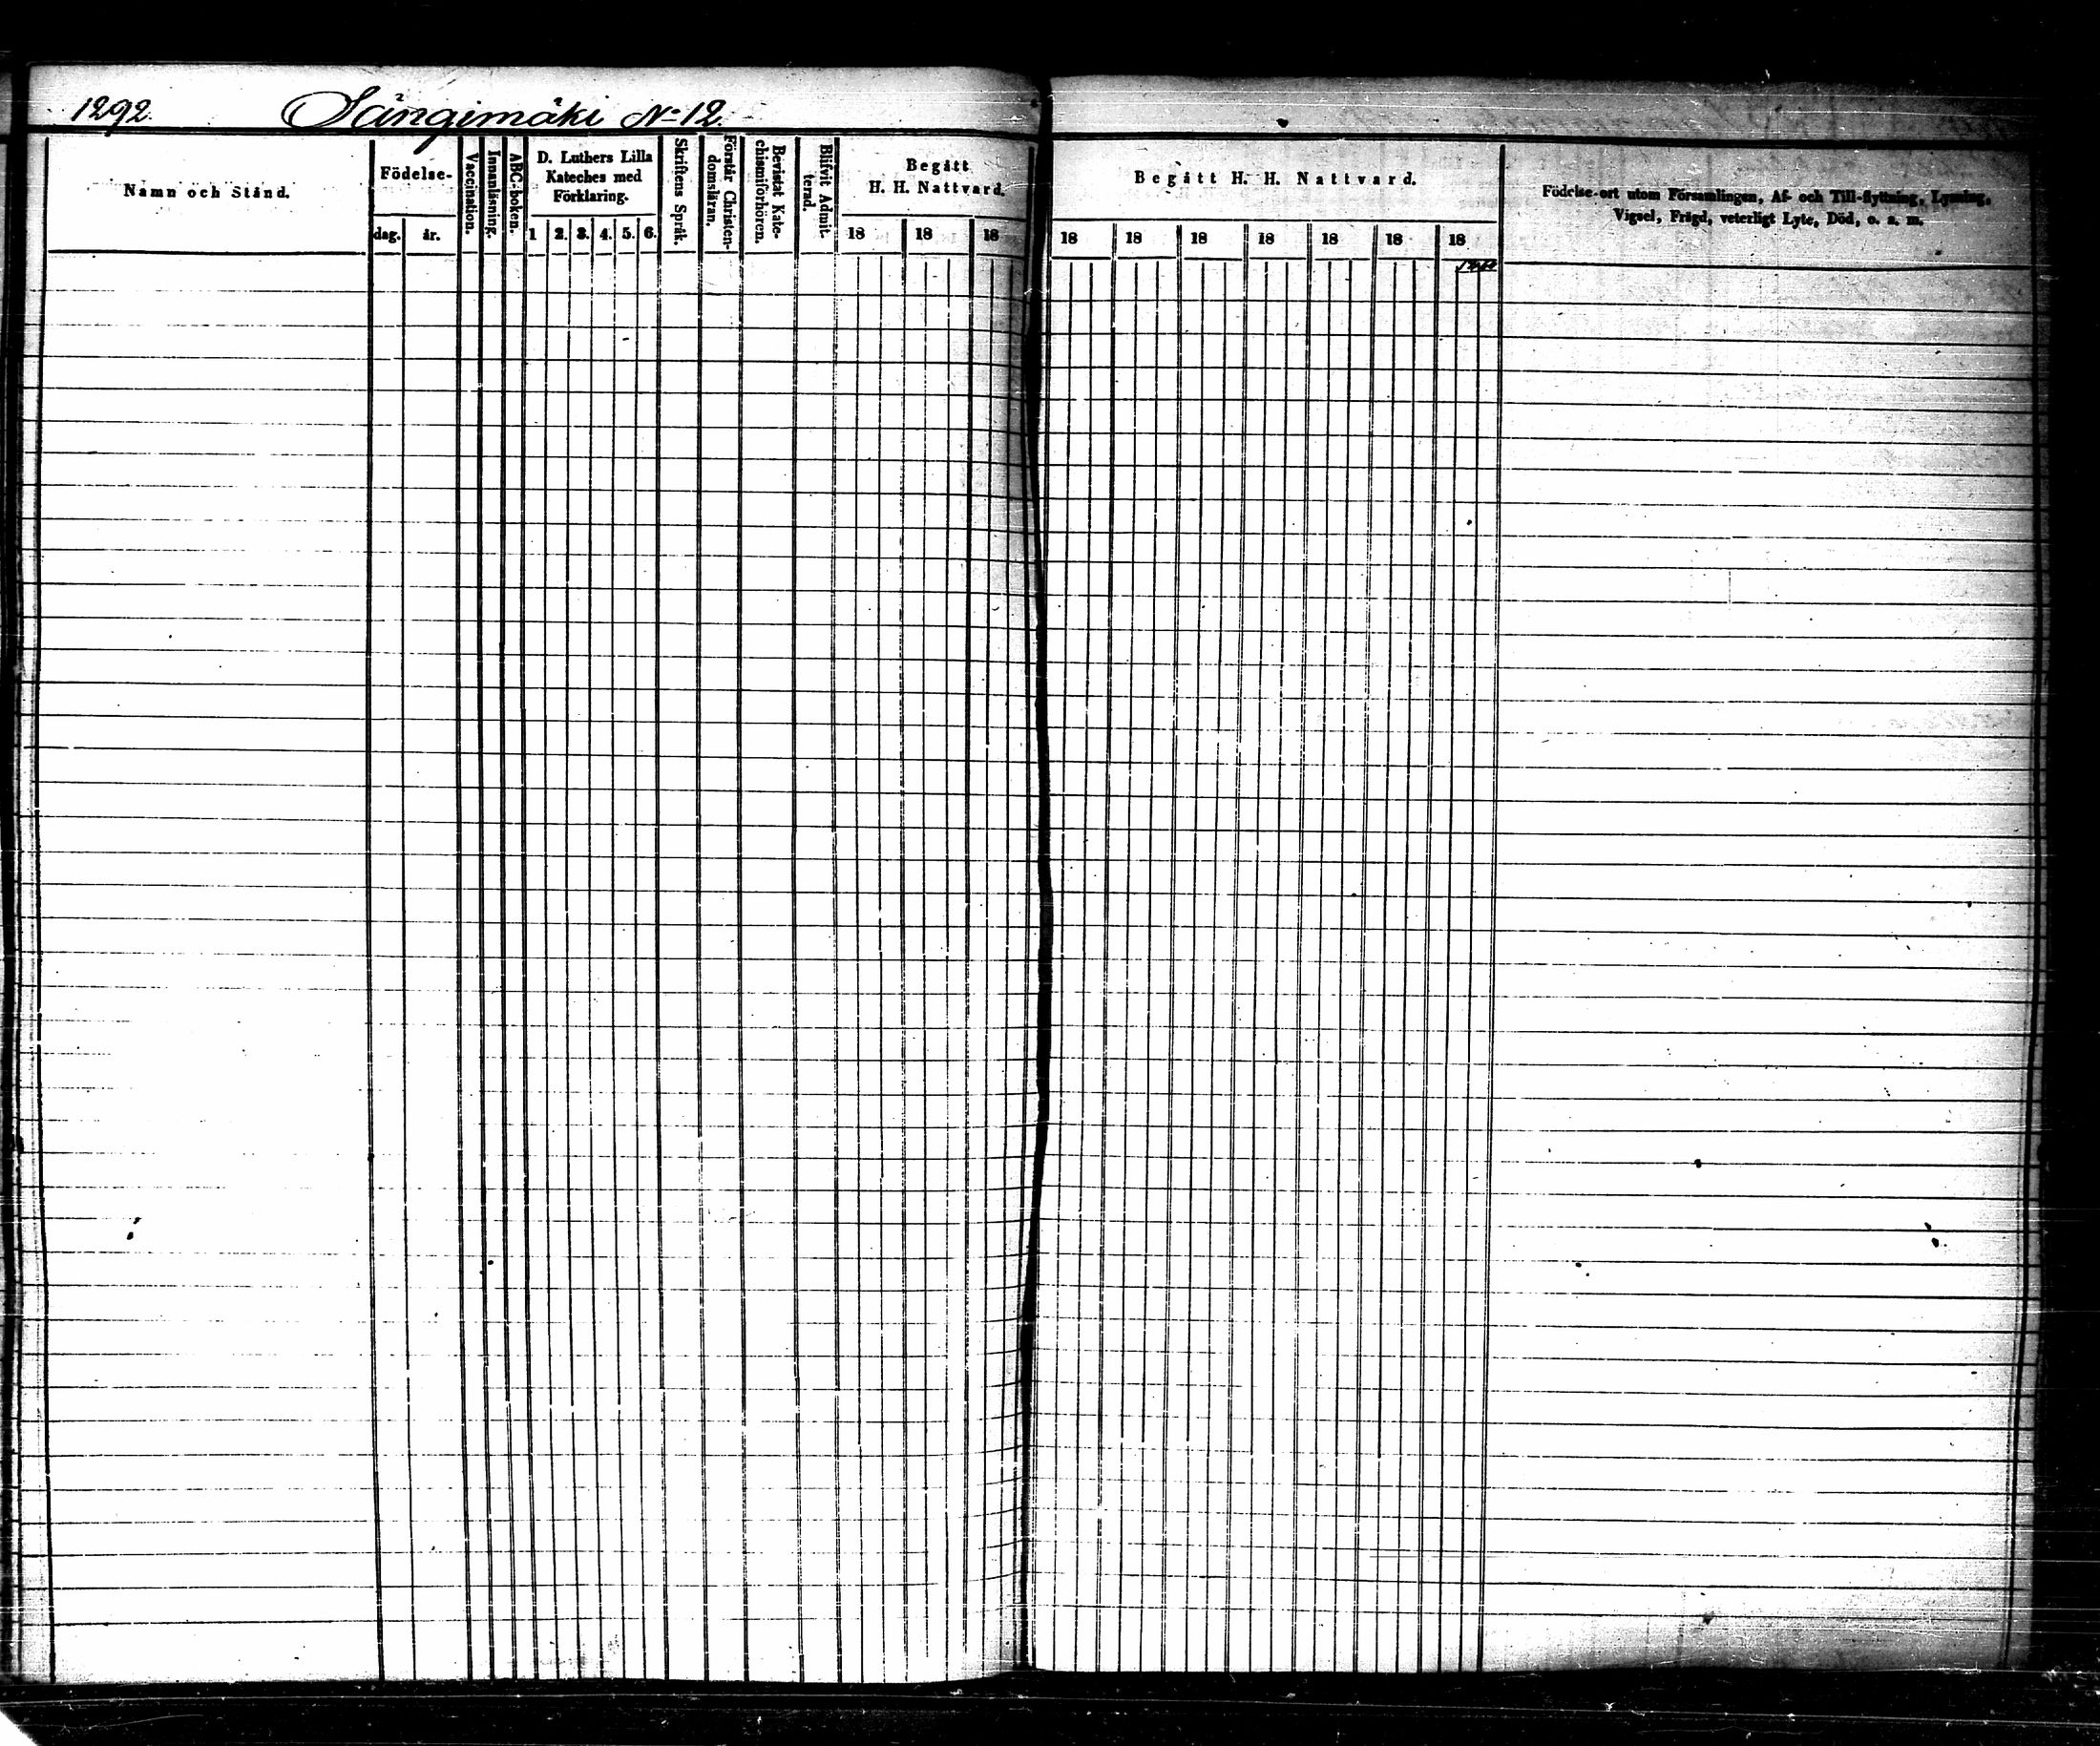 1292. Sängimäki No 12.
Namn och Stånd.
Födelse-
dag. år.
Vaccination.
Innanläsning.
ABC-boken.
D. Luthers Lilla
Kateches med
Förklaring.
1 2. 3. 4. 5. 6.
Skriftens Språk.
Förstår Christen-
domsläran.
Bevistat Kate-
chismiförhören.
Blifvit Admit-
terad.
Begått
H. H. Nattvard.
18 18 18
Begått H. H. Nattvard.
18 18 18 18 18 18 18
Födelse-ort utom Församlingen, Af- och Till-flyttning, Lysning,
Vigsel, Frägd, veterligt Lyte, Död, o. s. m.